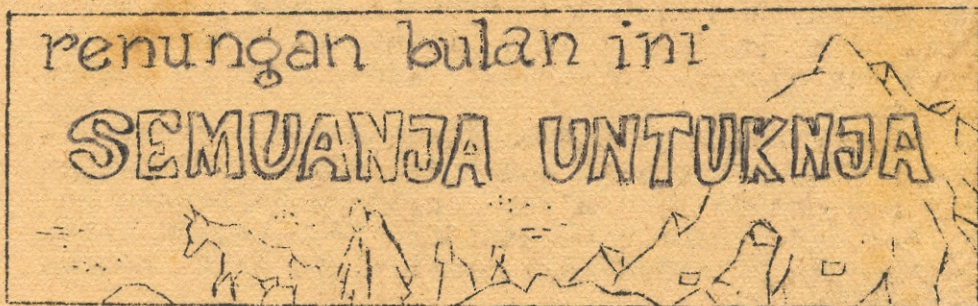 renungan bulan ini
SEMUANJA UNTUKNJA